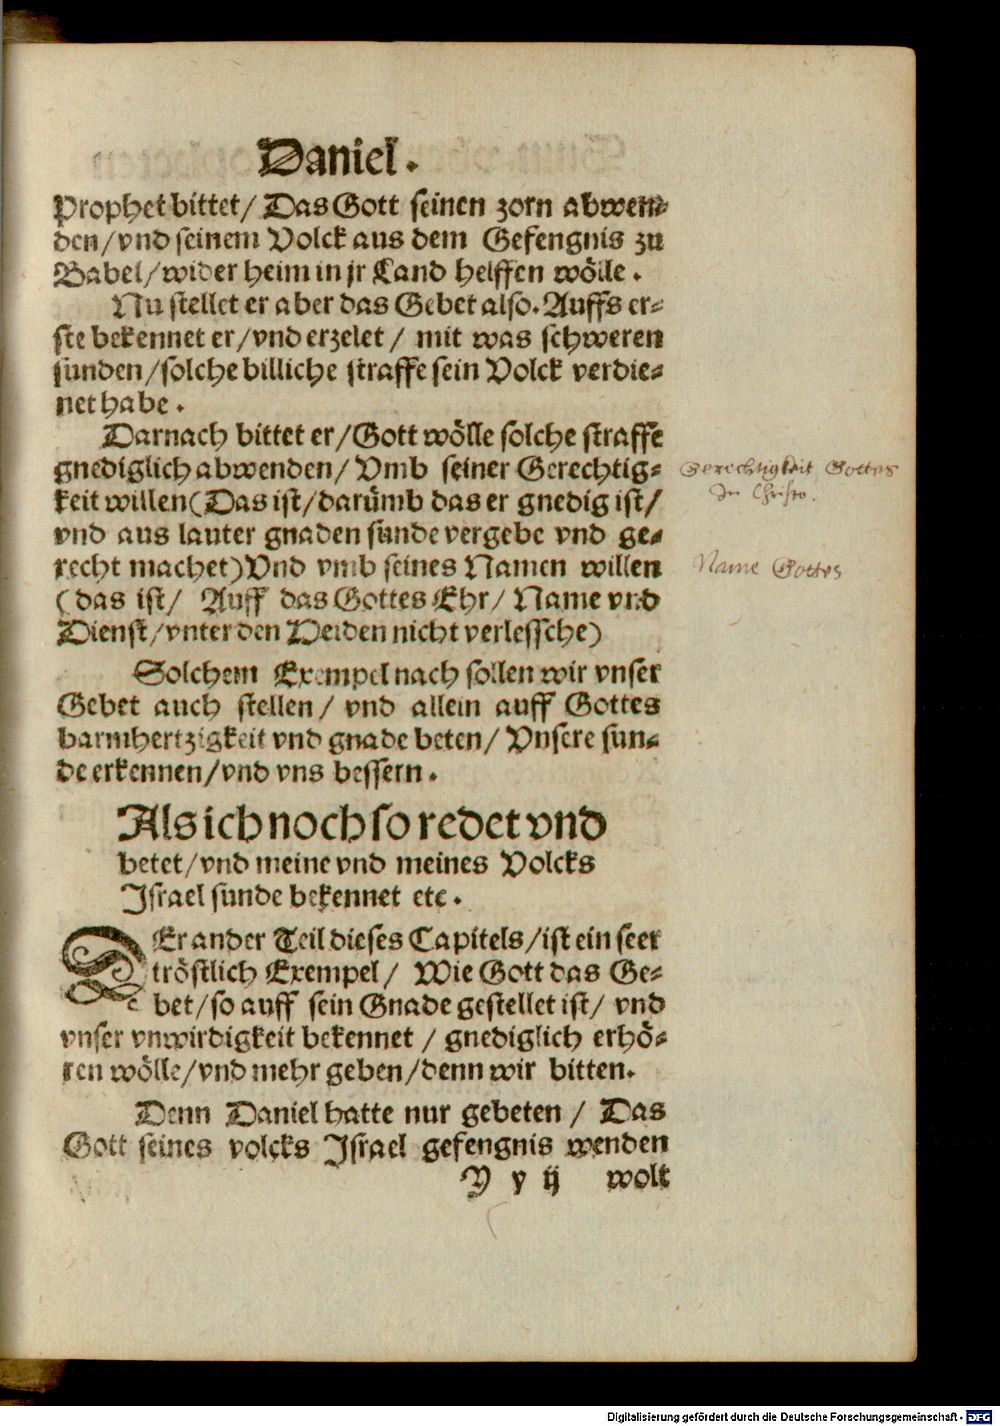 Daniel.
Prophet bittet/ Das Gott seinen zorn abwen-
den/vnd seinem Volck aus dem Gefengnis zu
Babel/wider heim in jr Land helffen wölle.
Nu stellet er aber das Gebet also. Auffs er-
ste bekennet er/vnd erzelet/ mit was schweren
sunden/solche billiche straffe sein Volck verdie-
net habe.
Darnach bittet er/Gott wölle solche straffe
gnediglich abwenden/ Vmb seiner Gerechtig-
keit willen(Das ist/darümb das er gnedig ist/
vnd aus lauter gnaden sunde vergebe vnd ge-
recht machet)Vnd vmb seines Namen willen
(das ist/ Auff das Gottes Ehr/ Name vnd
Dienst/vnter den Heiden nicht verlessche)
Gerechtigkeit Gottes
In Christo.
Name Gottes
Solchem Exempel nach sollen wir vnser
Gebet auch stellen/ vnd allein auff Gottes
barmhertzigkeit vnd gnade beten/ Vnsere sun-
de erkennen/vnd vns bessern.
Als ich noch so redet vnd
betet/vnd meine vnd meines Volcks
Israel sunde bekennet etc.
DEr ander Teil dieses Capitels/ist ein seer
tröstlich Exempel/ Wie Gott das Ge-
bet/so auff sein Gnade gestellet ist/ vnd
vnser vnwirdigkeit bekennet / gnediglich erhö-
ren wölle/vnd mehr geben/denn wir bitten.
Denn Daniel hatte nur gebeten/ Das
Gott seines volcks Israel gefengnis wenden
Y y ij wolt
Digitalisierung gefördert durch die Deutsche Forschungsgemeinschaft - DFG